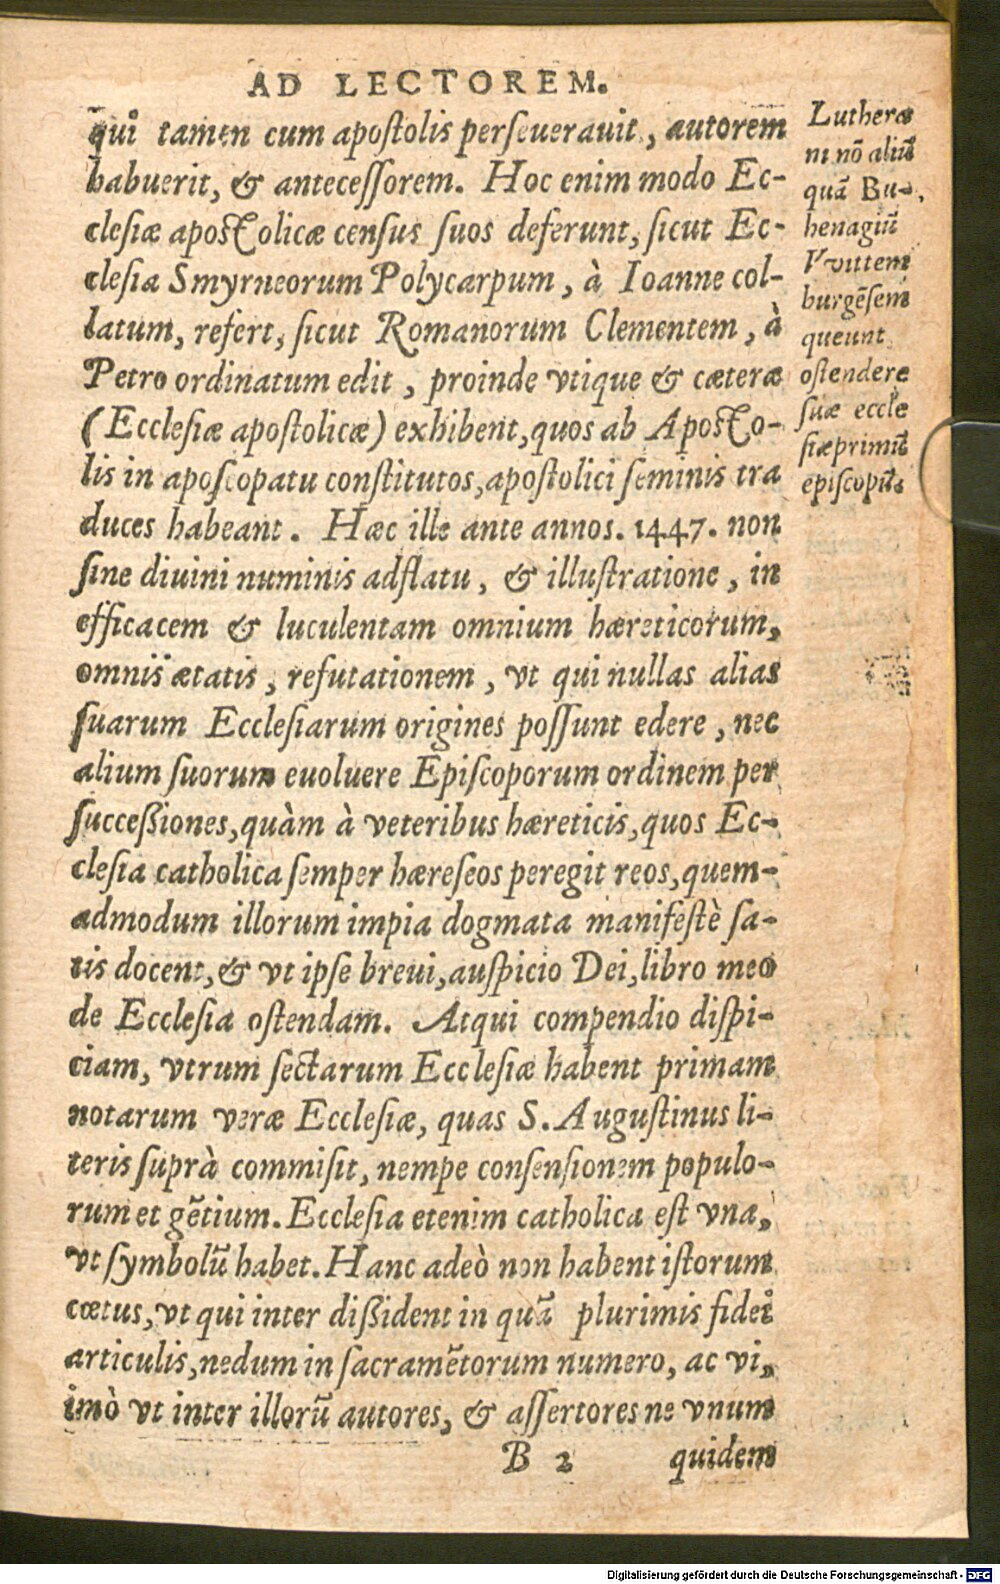 AD LECTOREM.
qui tamen cum apostolis perseuerauit, autorem
habuerit, & antecessorem. Hoc enim modo Ec-
clesiæ apostolicæ census suos deferunt, sicut Ec-
clesia Smyrneorum Polycarpum, à Ioanne col-
latum, refert, sicut Romanorum Clementem, à
Petro ordinatum edit, proinde vtique & cæteræ
(Ecclesiæ apostolicæ) exhibent, quos ab Aposto-
lis in aposcopatu constitutos, apostolici seminis tra
duces habeant. Hæc ille ante annos. 1447. non
sine diuini numinis adflatu, & illustratione, in
efficacem & luculentam omnium hæreticorum,
omnis ætatis, refutationem, vt qui nullas alias
suarum Ecclesiarum origines possunt edere, nec
alium suorum euoluere Episcoporum ordinem per
successiones, quàm à veteribus hæreticis, quos Ec-
clesia catholica semper hæreseos peregit reos, quem-
admodum illorum impia dogmata manifestè sa-
tis docent, & vt ipse breui, auspicio Dei, libro meo
de Ecclesia ostendam. Atqui compendio dispi-
ciam, vtrum sectarum Ecclesiæ habent primam
notarum veræ Ecclesiæ, quas S. Augustinus li-
teris suprà commisit, nempe consensionem populo-
rum et gētium. Ecclesia etenim catholica est vna,
vt symbolū habet. Hanc adeò non habent istorum
cœtus, vt qui inter dissident in quā plurimis fidei
articulis, nedum in sacramētorum numero, ac vi,
imò vt inter illorū autores, & assertores ne vnum
B 2 quidem
Lutheræ
ni nō aliū
quā Bu-
henagiū
VVittem
burgēsem
queunt
ostendere
suæ eccle
siæ primū
episcopū.
Digitalisierung gefördert durch die Deutsche Forschungsgemeinschaft - DFG